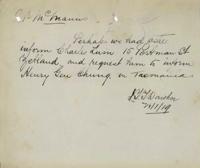 Mr McManus
Perhaps we had better
inform Charlie Lum 15 Portman St
Zetland and request him to inform
Henry Gee Chung in Tasmania